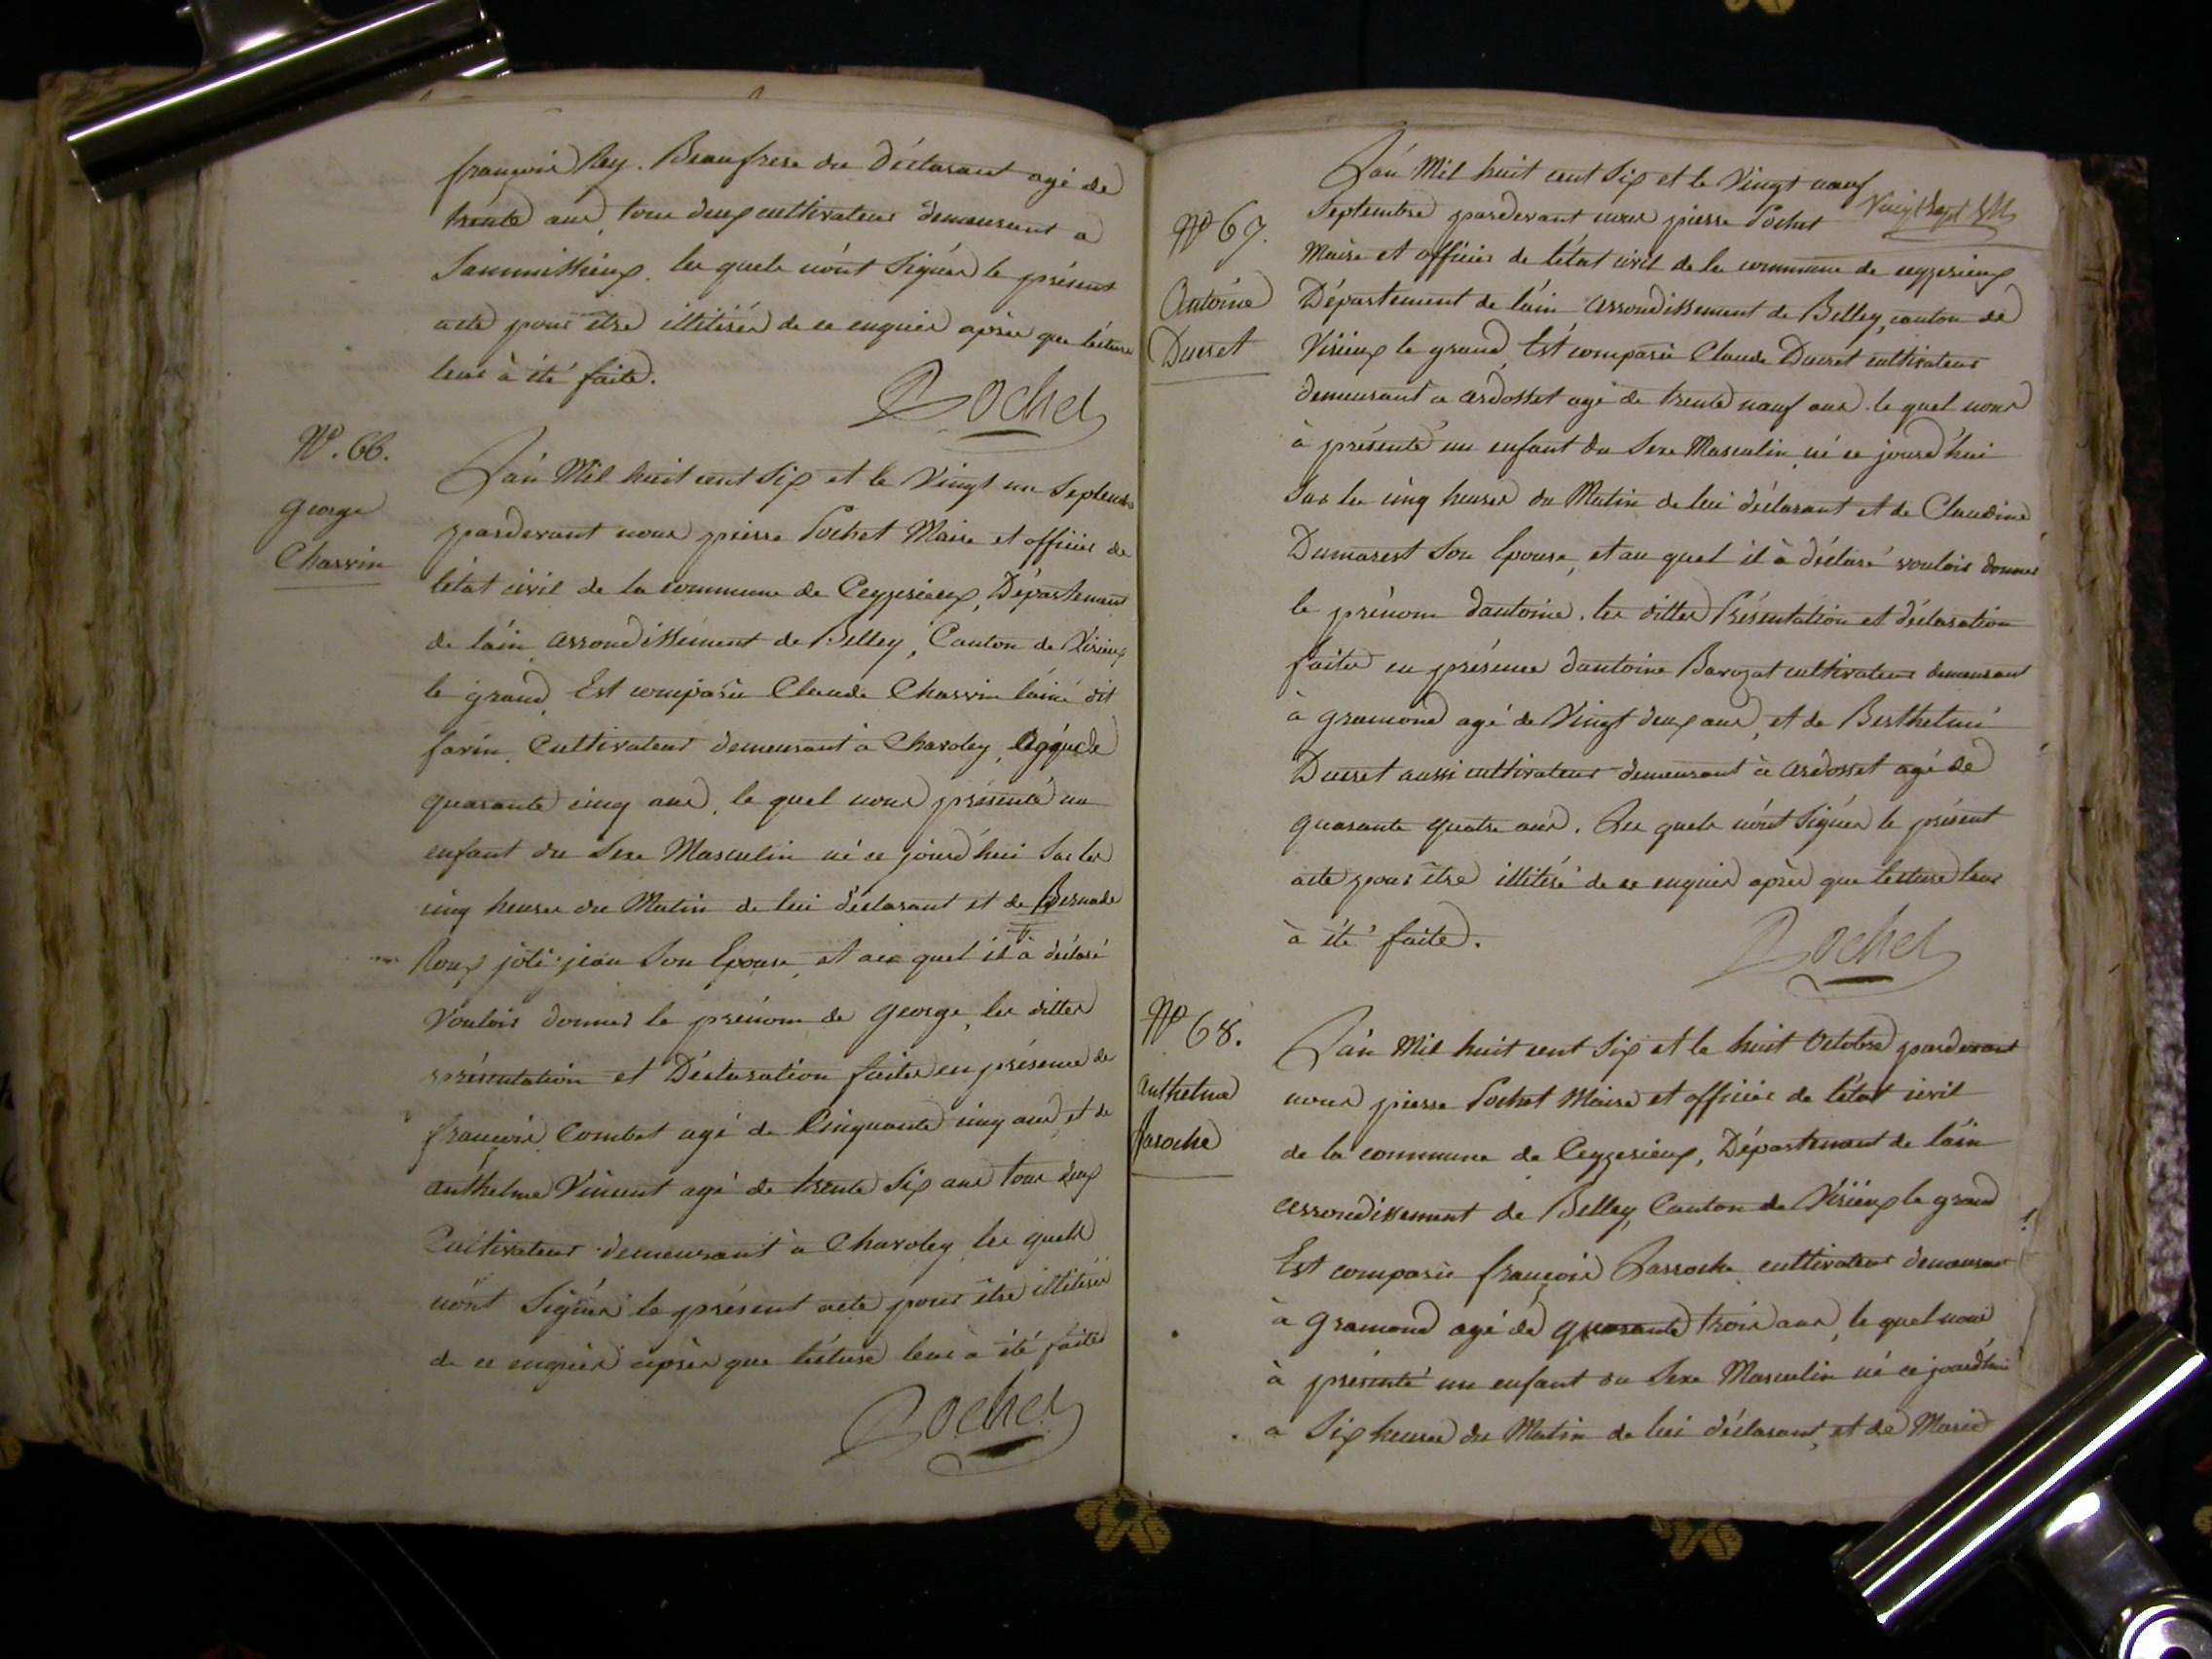 françois Rey. Beaufrere du Déclarant agé de
trente ans, tous deux cultivateurs demeurant a
Sammithieux. les quels n'ont Signés le présent
acte pour être illitérés de ce enquier après que lécture
leur à été faite.
Pochet
N°. 66.
george
Charvin
L'án Mil huit cent Six et le Vingt un Septembre
pardevant nous pierre Pochet Maire et officier de
létat civil de la commune de Ceyzerieux, Département
de láin arrondissement de Belley, Canton de Virieux
le grand, Est comparu Claude Charvin láiné dit
farin, Cultivateur demeurant à Charoley, Aggé de
quarante cinq ans, le quel nous présenté un
enfant du Sexe Masculin né ce jourd'hui Sur les
cinq heures du Matin de lui déclarant et de Bernade
Roux joli jean Son Epouse, et au quel il à déclaré
Vouloir donner le prénom de george, les dittes
présentation et Déclaration faites en présence de
françois Combet agé de Cinquante cinq ans, et de
anthelme Vincent agé de trente Six ans tous deux
Cultivateurs demeurant à Charoley les quels
n'ont Signés le présent acte pour être illitérés
de ce enquier après que lécture leur à été faite
Pochet
Vingt Sept
N° 67.
Antoine
Ducret
L'án Mil huit cent Six et le Vingt neuf
Septembre pardevant nous pierre Pochet
Maire et officier de létat civil de la commune de ceyzerieux
Département de láin arrondissement de Belley, canton de
Virieux le grand, Est comparu Claude Ducret cultivateur
demeurant a ardosset agé de trente neuf ans. le quel nous
à présenté un enfant du Sexe Masculin né ce jourd'hui
Sur les cinq heures du Matin de lui déclarant et de Claudine
Dumarest Son Epouse, et au quel il à déclaré vouloir donner
le prénom dantoine. les dittes Présentation et déclaration
faites en présence dantoine Barozat cultivateur demeurant
à gramond agé de Vingt deux ans, et de Berthelmé
Ducret aussi cultivateur demeurant à ardosset agé de
quarante quatre ans. Les quels n'ónt Signés le présent
acte pour être illitéré de ce enquier après que lecture leur
à été faite.
Pochet
N° 68.
anthelme
Jaroche
L'án Mil huit cent Six et le huit Octobre pardevant
nous pierre Pochet Maire et officier de létat civil
de la commune de Ceyzerieux, Département de láin
arrondissement de Belley, Canton de Virieux le grand
Est comparu françois Jarroche cultivateur demeurant
à gramond agé de quarante trois ans, le quel nous
à présenté un enfant du Sexe Masculin né ce jourd'hui
a Six heures du Matin de lui déclarant, et de Marie